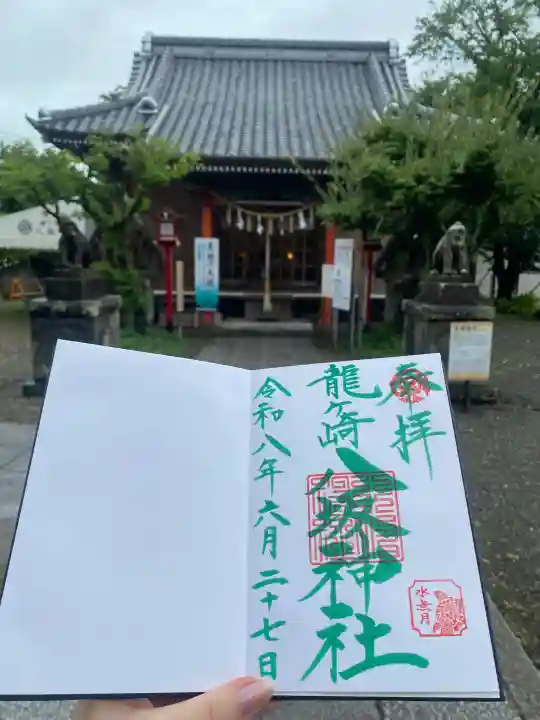 奉拝
龍ヶ崎
八坂神社
令和八年六月二十七日
水無月